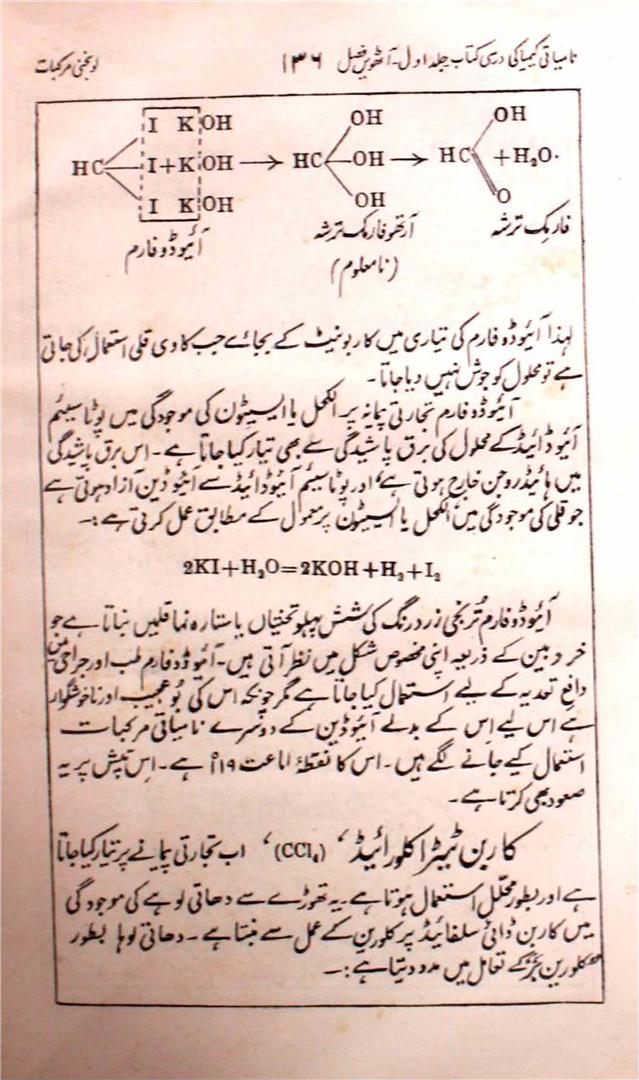 نامیاتی کیمیا کی درسی کتاب جلد اول۔ آٹھویں فصل ۱۳۶ لونجنی مرکبات
I K OH OH OH
HC I+K OH → HC OH → HC +H₂O·
I K OH OH O
آئیوڈو فارم آرتھو فارمک ترشہ فارمک ترشہ
(نامعلوم)
لہذا آئیوڈو فارم کی تیاری میں کاربونیٹ کے بجائے جب کاوی قلی استعمال کی جاتی
ہے تو محلول کو جوش نہیں دیا جاتا۔
آئیوڈو فارم تجارتی پیمانہ پر الکحل یا ایسیٹون کی موجودگی میں پوٹاسیئم
آئیوڈائیڈ کے محلول کی برق پاشیدگی سے بھی تیار کیا جاتا ہے۔ اس برق پاشیدگی
میں ہائیڈروجن خارج ہوتی ہے، اور پوٹاسیئم آئیوڈائیڈ سے آئیوڈین آزاد ہوتی ہے
جو قلی کی موجودگی میں الکحل یا ایسیٹون پر معمول کے مطابق عمل کرتی ہے:۔
2KI+H₂O=2KOH+H₂+I₂
آئیوڈو فارم تُرنجی زرد رنگ کی شش پہلو تختیاں یا ستارہ نما قلمیں بناتا ہے جو
خردبین کے ذریعہ اپنی مخصوص شکل میں نظر آتی ہیں۔ آئیوڈو فارم طب اور جراحی میں
دافع تعدیہ کے لیے استعمال کیا جاتا ہے مگر چونکہ اس کی بُو عجیب اور ناخوشگوار
ہے اس لیے اِس کے بدلے آئیوڈین کے دوسرے نامیاتی مرکبات
استعمال کیے جانے لگے ہیں۔ اس کا نقطۂ اماعت ۱۱۹° ہے۔ اس تپش پر یہ
صعود بھی کرتا ہے۔
کاربن ٹیٹرا کلورائیڈ، (CCl₄)، اب تجارتی پیمانے پر تیار کیا جاتا
ہے اور بطور محلل استعمال ہوتا ہے۔ یہ تھوڑے سے دھاتی لوہے کی موجودگی
میں کاربن ڈائی سلفائیڈ پر کلورین کے عمل سے بنتا ہے۔ دھاتی لوہا بطور
کلورین بَر کے تعامل میں مدد دیتا ہے:۔